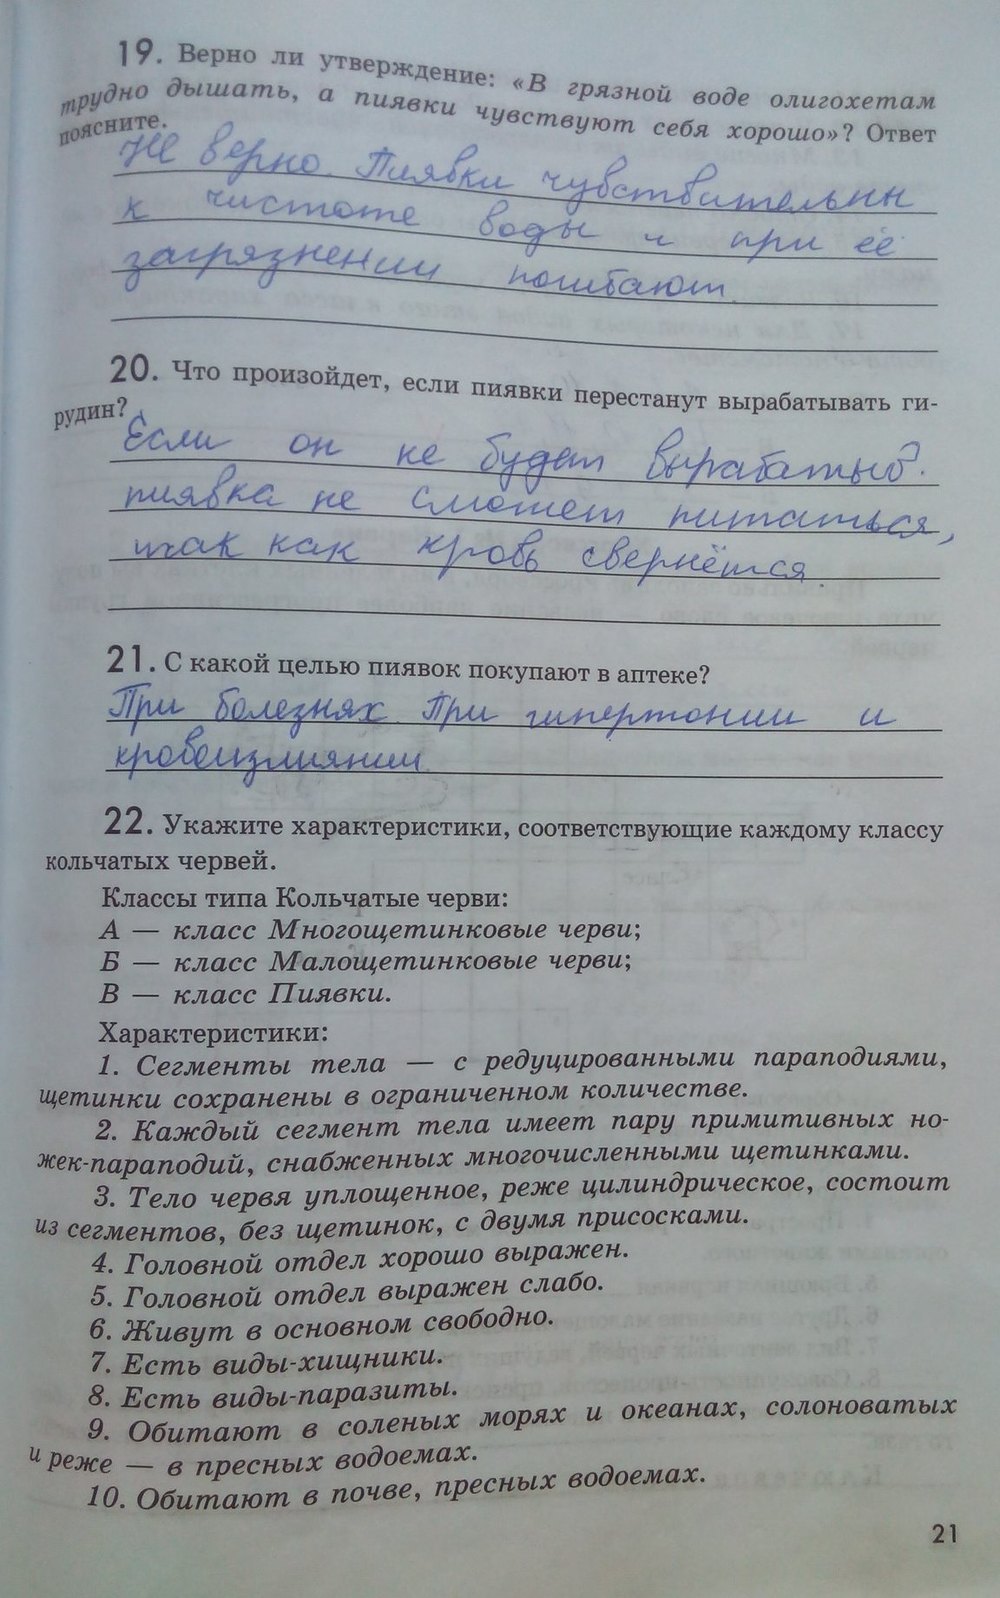 19. Верно ли утверждение: «В грязной воде олигохетам
трудно дышать, а пиявки чувствуют себя хорошо»? Ответ
поясните.
Не верно. Пиявки чувствительны
к чистоте воды и при её
загрязнении погибают.
20. Что произойдет, если пиявки перестанут вырабатывать ги-
рудин?
Если он не будет вырабатыв.
пиявка не сможет питаться,
так как кровь свернётся.
21. С какой целью пиявок покупают в аптеке?
При болезнях. При гипертонии и
кровоизлиянии.
22. Укажите характеристики, соответствующие каждому классу
кольчатых червей.
Классы типа Кольчатые черви:
А — класс Многощетинковые черви;
Б — класс Малощетинковые черви;
В — класс Пиявки.
Характеристики:
1. Сегменты тела — с редуцированными параподиями,
щетинки сохранены в ограниченном количестве.
2. Каждый сегмент тела имеет пару примитивных но-
жек-параподий, снабженных многочисленными щетинками.
3. Тело червя уплощенное, реже цилиндрическое, состоит
из сегментов, без щетинок, с двумя присосками.
4. Головной отдел хорошо выражен.
5. Головной отдел выражен слабо.
6. Живут в основном свободно.
7. Есть виды-хищники.
8. Есть виды-паразиты.
9. Обитают в соленых морях и океанах, солоноватых
и реже — в пресных водоемах.
10. Обитают в почве, пресных водоемах.
21